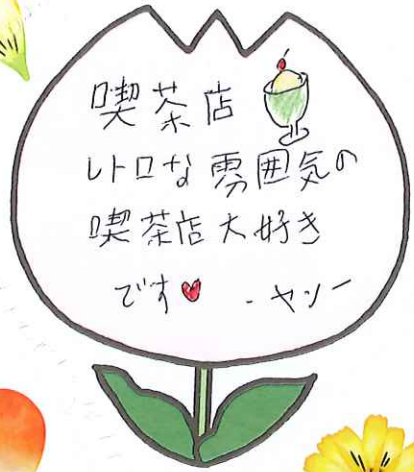 喫茶店
レトロな雰囲気の
喫茶店大好き
です♥ - ヤンー